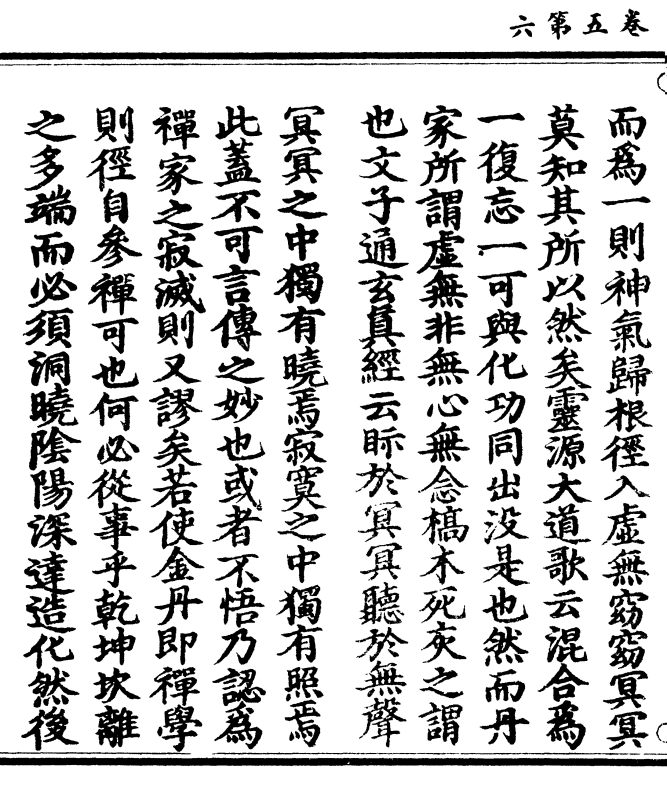 卷五第六
而爲一則神氣歸根徑入虛無窈窈冥冥
莫知其所以然矣靈源大道歌云混合爲
一復忘一可與化功同出没是也然而丹
家所謂虛無非無心無念槁木死灰之謂
也文子通玄真經云眎於冥冥聽於無聲
冥冥之中獨有曉焉寂寞之中獨有照焉
此蓋不可言傳之妙也或者不悟乃認爲
禪家之寂滅則又謬矣若使金丹即禪學
則徑自參禪可也何必從事乎乾坤坎離
之多端而必須洞曉陰陽深達造化然後